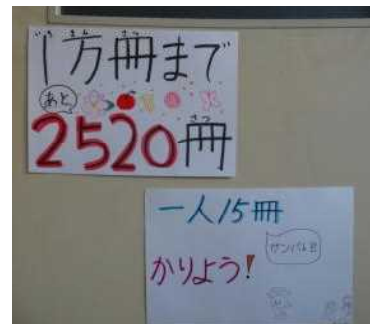 1万冊まで
あと
2520冊
一人15冊
かりよう!